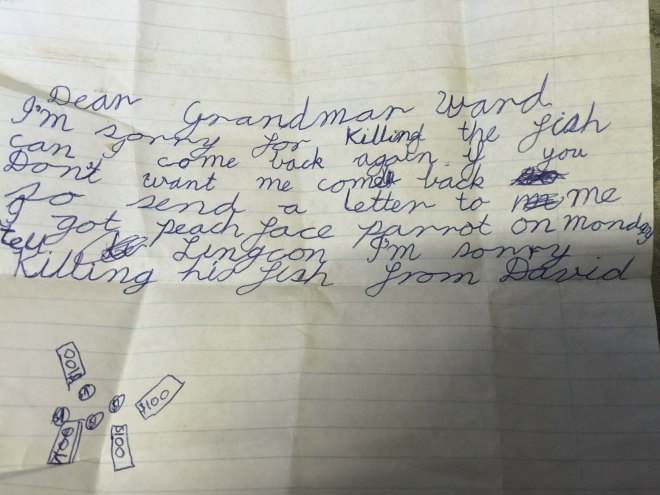 Dear Grandmar Ward
I'm sorry for Killing the fish
can I come back again if you
Don't want me come back
so send a letter to me
I got peach face parrot on monday
tell Lingcon I'm sorry
Killing his fish from David
$100
$100
$100
$100